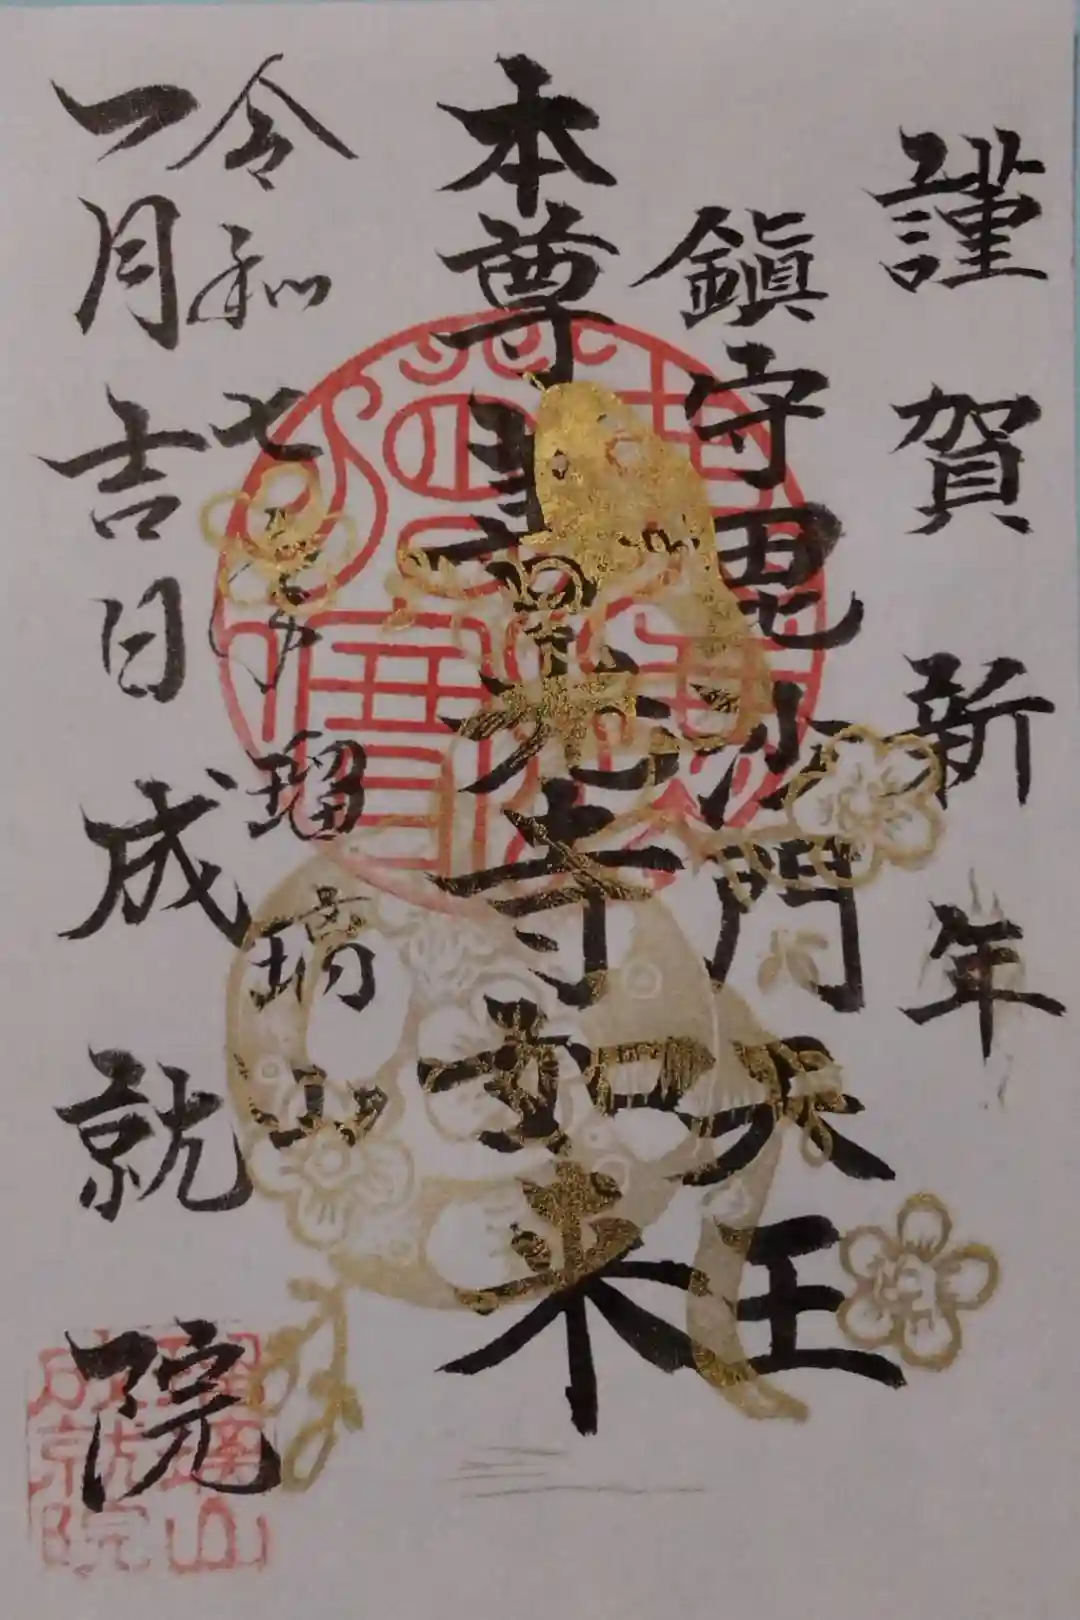 謹賀新年
鎭守毘沙門天王
本尊善光寺如来
令和七年 瑠璃山
一月吉日 成就院
瑠璃山
成就院